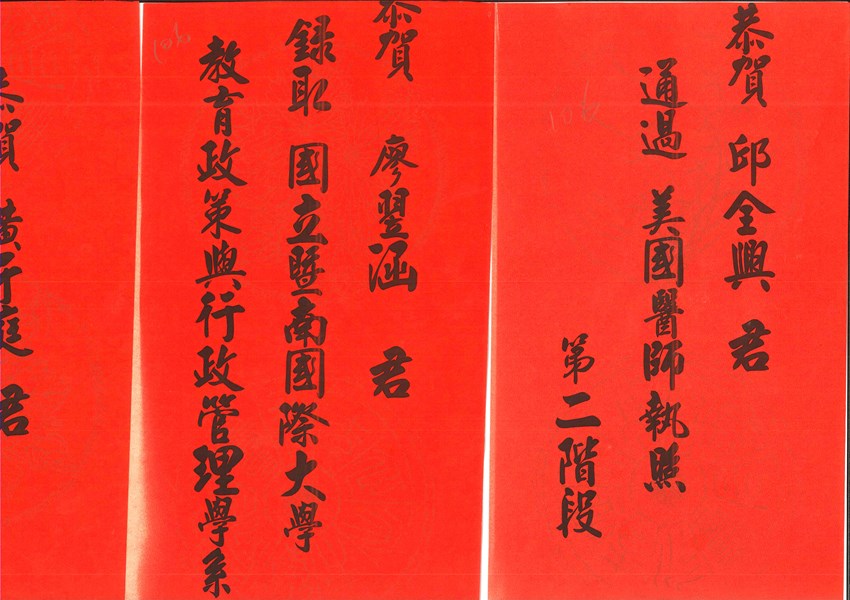 恭賀 邱全興 君
通過 美國醫師執照
第二階段
恭賀 廖翌涵 君
錄取 國立暨南國際大學
教育政策與行政管理學系
恭賀 黃于庭 君